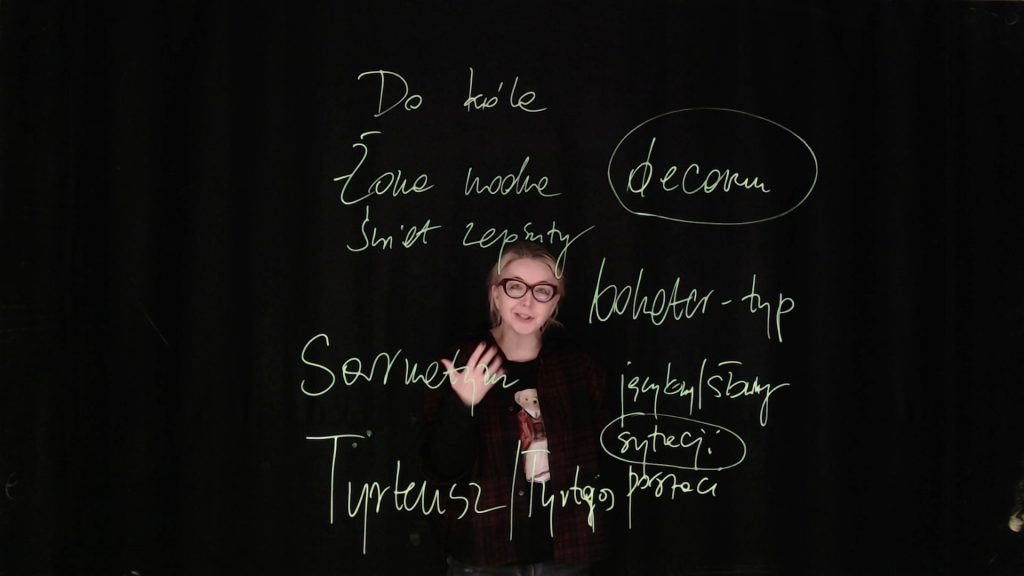 Do króla
Żona modna
Świat zepsuty
decorum
bohater-typ
Sarmatyzm
językowy/słowny
sytuacji
postaci
Tyrteusz/Tyrtajos